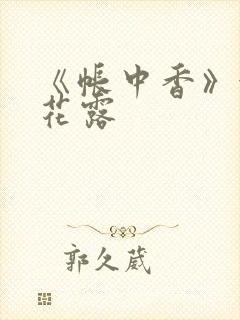 《帐中香》
花露
郭久葳